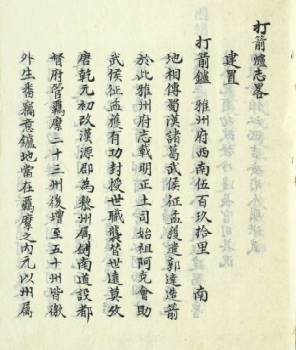 打箭爐志畧
建置
打箭鑪 雅州府西南伍百玖拾里 南
地相傳蜀漢諸葛武侯征孟獲遣郭達造箭
於此雅州府志載明正土司始祖阿克會助
武侯征孟獲有功封授世職襲替世遠莫攷
唐乾元初改漢源郡為黎州屬劍南道設都
督府管羈縻二十三州後增至五十州皆徼
外生番竊意鑪地當在羈縻之內元以州屬